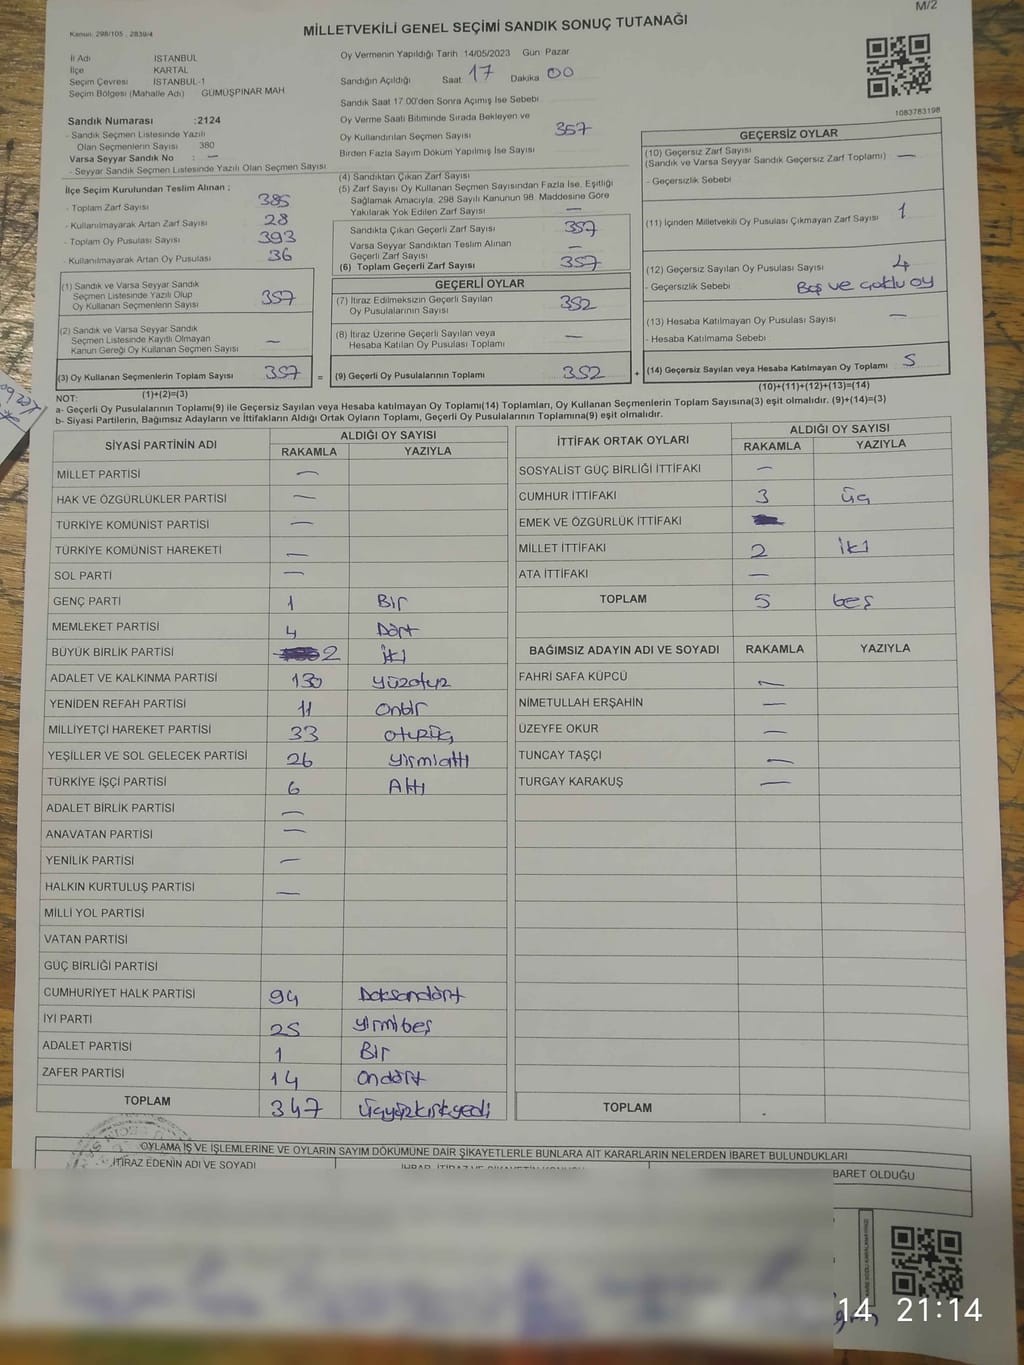 M/2
Kanun: 298/105 , 2839/4
MİLLETVEKİLİ GENEL SEÇİMİ SANDIK SONUÇ TUTANAĞI
İl Adı İSTANBUL
İlçe KARTAL
Seçim Çevresi İSTANBUL-1
Seçim Bölgesi (Mahalle Adı) GÜMÜŞPINAR MAH
Oy Vermenin Yapıldığı Tarih 14/05/2023 Gün: Pazar
Sandığın Açıldığı Saat 17 Dakika 00
Sandık Saat 17.00'den Sonra Açımış İse Sebebi
Oy Verme Saati Bitiminde Sırada Bekleyen ve
Oy Kullandırılan Seçmen Sayısı 357
Birden Fazla Sayım Döküm Yapılmış İse Sayısı
1083783198
Sandık Numarası :2124
- Sandık Seçmen Listesinde Yazılı
Olan Seçmenlerin Sayısı 380
Varsa Seyyar Sandık No : —
- Seyyar Sandık Seçmen Listesinde Yazılı Olan Seçmen Sayısı
İlçe Seçim Kurulundan Teslim Alınan ;
- Toplam Zarf Sayısı 385
- Kullanılmayarak Artan Zarf Sayısı 28
- Toplam Oy Pusulası Sayısı 393
- Kullanılmayarak Artan Oy Pusulası 36
(1) Sandık ve Varsa Seyyar Sandık
Seçmen Listesinde Yazılı Olup
Oy Kullanan Seçmenlerin Sayısı 357
(2) Sandık ve Varsa Seyyar Sandık
Seçmen Listesinde Kayıtlı Olmayan
Kanun Gereği Oy Kullanan Seçmen Sayısı —
(3) Oy Kullanan Seçmenlerin Toplam Sayısı 357
(1)+(2)=(3)
(4) Sandıktan Çıkan Zarf Sayısı
(5) Zarf Sayısı Oy Kullanan Seçmen Sayısından Fazla İse, Eşitliği
Sağlamak Amacıyla, 298 Sayılı Kanunun 98. Maddesine Göre
Yakılarak Yok Edilen Zarf Sayısı —
Sandıkta Çıkan Geçerli Zarf Sayısı 357
Varsa Seyyar Sandıktan Teslim Alınan
Geçerli Zarf Sayısı —
(6) Toplam Geçerli Zarf Sayısı 357
GEÇERLİ OYLAR
(7) İtiraz Edilmeksizin Geçerli Sayılan
Oy Pusulalarının Sayısı 352
(8) İtiraz Üzerine Geçerli Sayılan veya
Hesaba Katılan Oy Pusulası Toplamı —
= (9) Geçerli Oy Pusulalarının Toplamı 352
GEÇERSİZ OYLAR
(10) Geçersiz Zarf Sayısı
(Sandık ve Varsa Seyyar Sandık Geçersiz Zarf Toplamı) —
- Geçersizlik Sebebi
(11) İçinden Milletvekili Oy Pusulası Çıkmayan Zarf Sayısı 1
(12) Geçersiz Sayılan Oy Pusulası Sayısı 4
- Geçersizlik Sebebi Boş ve çoklu oy
(13) Hesaba Katılmayan Oy Pusulası Sayısı —
- Hesaba Katılmama Sebebi
+ (14) Geçersiz Sayılan veya Hesaba Katılmayan Oy Toplamı 5
(10)+(11)+(12)+(13)=(14)
NOT:
a- Geçerli Oy Pusulalarının Toplamı(9) ile Geçersiz Sayılan veya Hesaba katılmayan Oy Toplamı(14) Toplamları, Oy Kullanan Seçmenlerin Toplam Sayısına(3) eşit olmalıdır. (9)+(14)=(3)
b- Siyasi Partilerin, Bağımsız Adayların ve İttifakların Aldığı Ortak Oyların Toplamı, Geçerli Oy Pusulalarının Toplamına(9) eşit olmalıdır.
SİYASİ PARTİNİN ADI ALDIĞI OY SAYISI
RAKAMLA YAZIYLA
MİLLET PARTİSİ —
HAK VE ÖZGÜRLÜKLER PARTİSİ —
TÜRKİYE KOMÜNİST PARTİSİ —
TÜRKİYE KOMÜNİST HAREKETİ —
SOL PARTİ —
GENÇ PARTİ 1 Bir
MEMLEKET PARTİSİ 4 Dört
BÜYÜK BİRLİK PARTİSİ 2 İki
ADALET VE KALKINMA PARTİSİ 130 yüzotuz
YENİDEN REFAH PARTİSİ 11 onbir
MİLLİYETÇİ HAREKET PARTİSİ 33 otuzüç
YEŞİLLER VE SOL GELECEK PARTİSİ 26 yirmialtı
TÜRKİYE İŞÇİ PARTİSİ 6 Altı
ADALET BİRLİK PARTİSİ —
ANAVATAN PARTİSİ —
YENİLİK PARTİSİ —
HALKIN KURTULUŞ PARTİSİ —
MİLLİ YOL PARTİSİ
VATAN PARTİSİ
GÜÇ BİRLİĞİ PARTİSİ
CUMHURİYET HALK PARTİSİ 94 Doksandört
İYİ PARTİ 25 yirmibeş
ADALET PARTİSİ 1 Bir
ZAFER PARTİSİ 14 ondört
TOPLAM 347 üçyüzkırkyedi
İTTİFAK ORTAK OYLARI ALDIĞI OY SAYISI
RAKAMLA YAZIYLA
SOSYALİST GÜÇ BİRLİĞİ İTTİFAKI —
CUMHUR İTTİFAKI 3 üç
EMEK VE ÖZGÜRLÜK İTTİFAKI
MİLLET İTTİFAKI 2 İki
ATA İTTİFAKI —
TOPLAM 5 beş
BAĞIMSIZ ADAYIN ADI VE SOYADI RAKAMLA YAZIYLA
FAHRİ SAFA KÜPCÜ —
NİMETULLAH ERŞAHİN —
ÜZEYFE OKUR —
TUNCAY TAŞÇI —
TURGAY KARAKUŞ —
TOPLAM
OYLAMA İŞ VE İŞLEMLERİNE VE OYLARIN SAYIM DÖKÜMÜNE DAİR ŞİKAYETLERLE BUNLARA AİT KARARLARIN NELERDEN İBARET BULUNDUKLARI
İTİRAZ EDENİN ADI VE SOYADI
BARET OLDUĞU
14 21:14